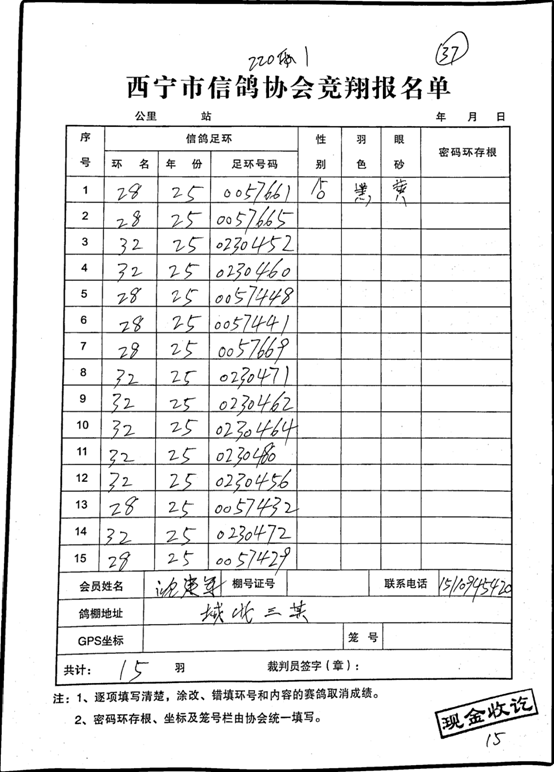 220 1
37
西宁市信鸽协会竞翔报名单
公里 站 年 月 日
序号 信鸽足环 性别 羽色 眼砂 密码环存根
环名 年份 足环号码
1 28 25 0057661 合 黑 黄
2 28 25 0057665
3 32 25 0230452
4 32 25 0230460
5 28 25 0057448
6 28 25 0057441
7 28 25 0057669
8 32 25 0230471
9 32 25 0230462
10 32 25 0230464
11 32 25 0230480
12 32 25 0230456
13 28 25 0057432
14 32 25 0230472
15 28 25 0057429
会员姓名 沈 军 棚号证号 联系电话 1510945420
鸽棚地址 城北三其
GPS坐标 笼号
共计: 15 羽 裁判员签字（章）:
注：1、逐项填写清楚，涂改、错填环号和内容的赛鸽取消成绩。
2、密码环存根、坐标及笼号栏由协会统一填写。
现金收讫
15